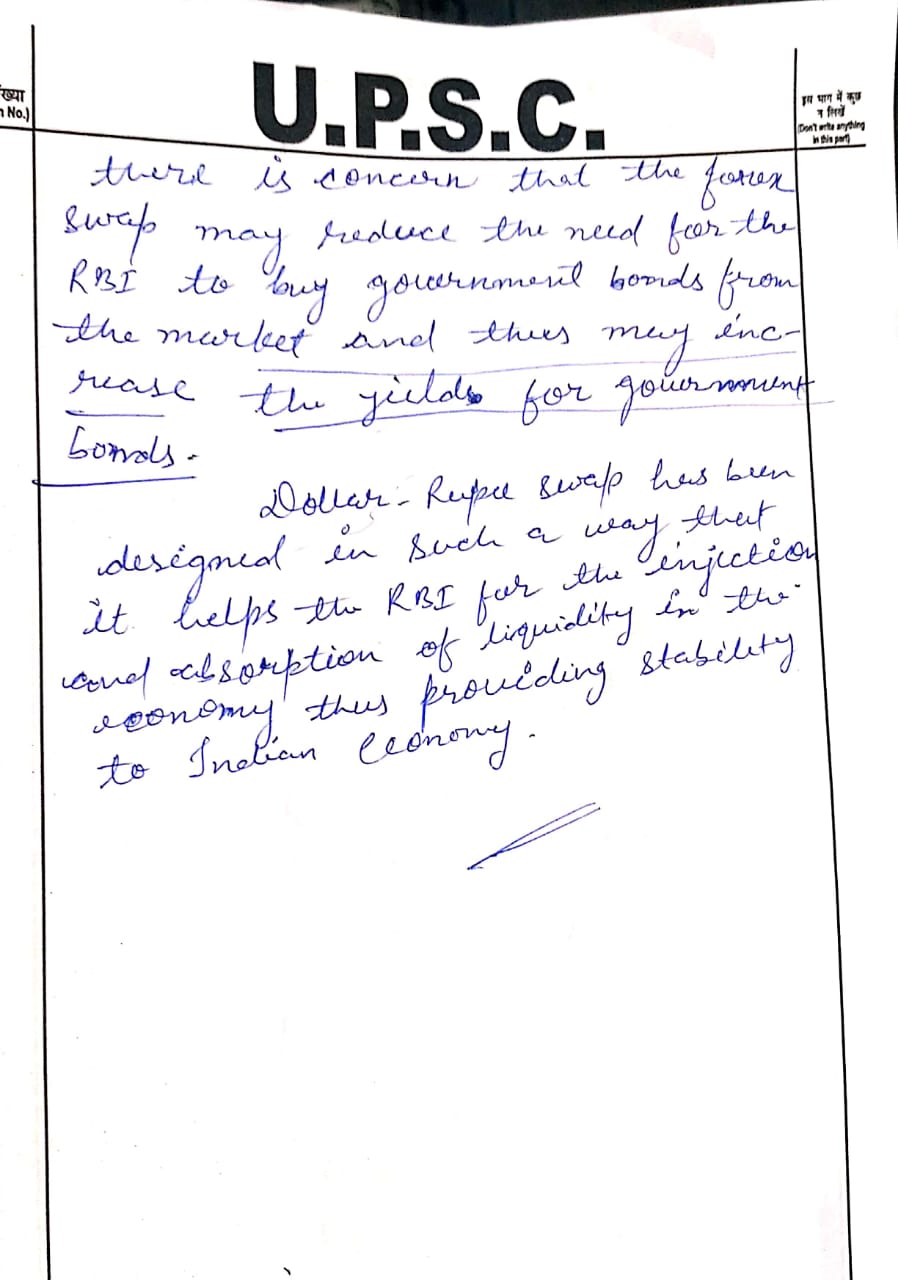 ख्या
No.)
U.P.S.C.
इस भाग में कुछ
न लिखें
(Don't write anything
in this part)
there is concern that the forex
swap may reduce the need for the
RBI to buy government bonds from
the market and thus may inc-
rease the yields for government
bonds.
Dollar - Rupee swap has been
designed in such a way that
it helps the RBI for the injection
and absorption of liquidity in the
economy thus providing stability
to Indian economy.